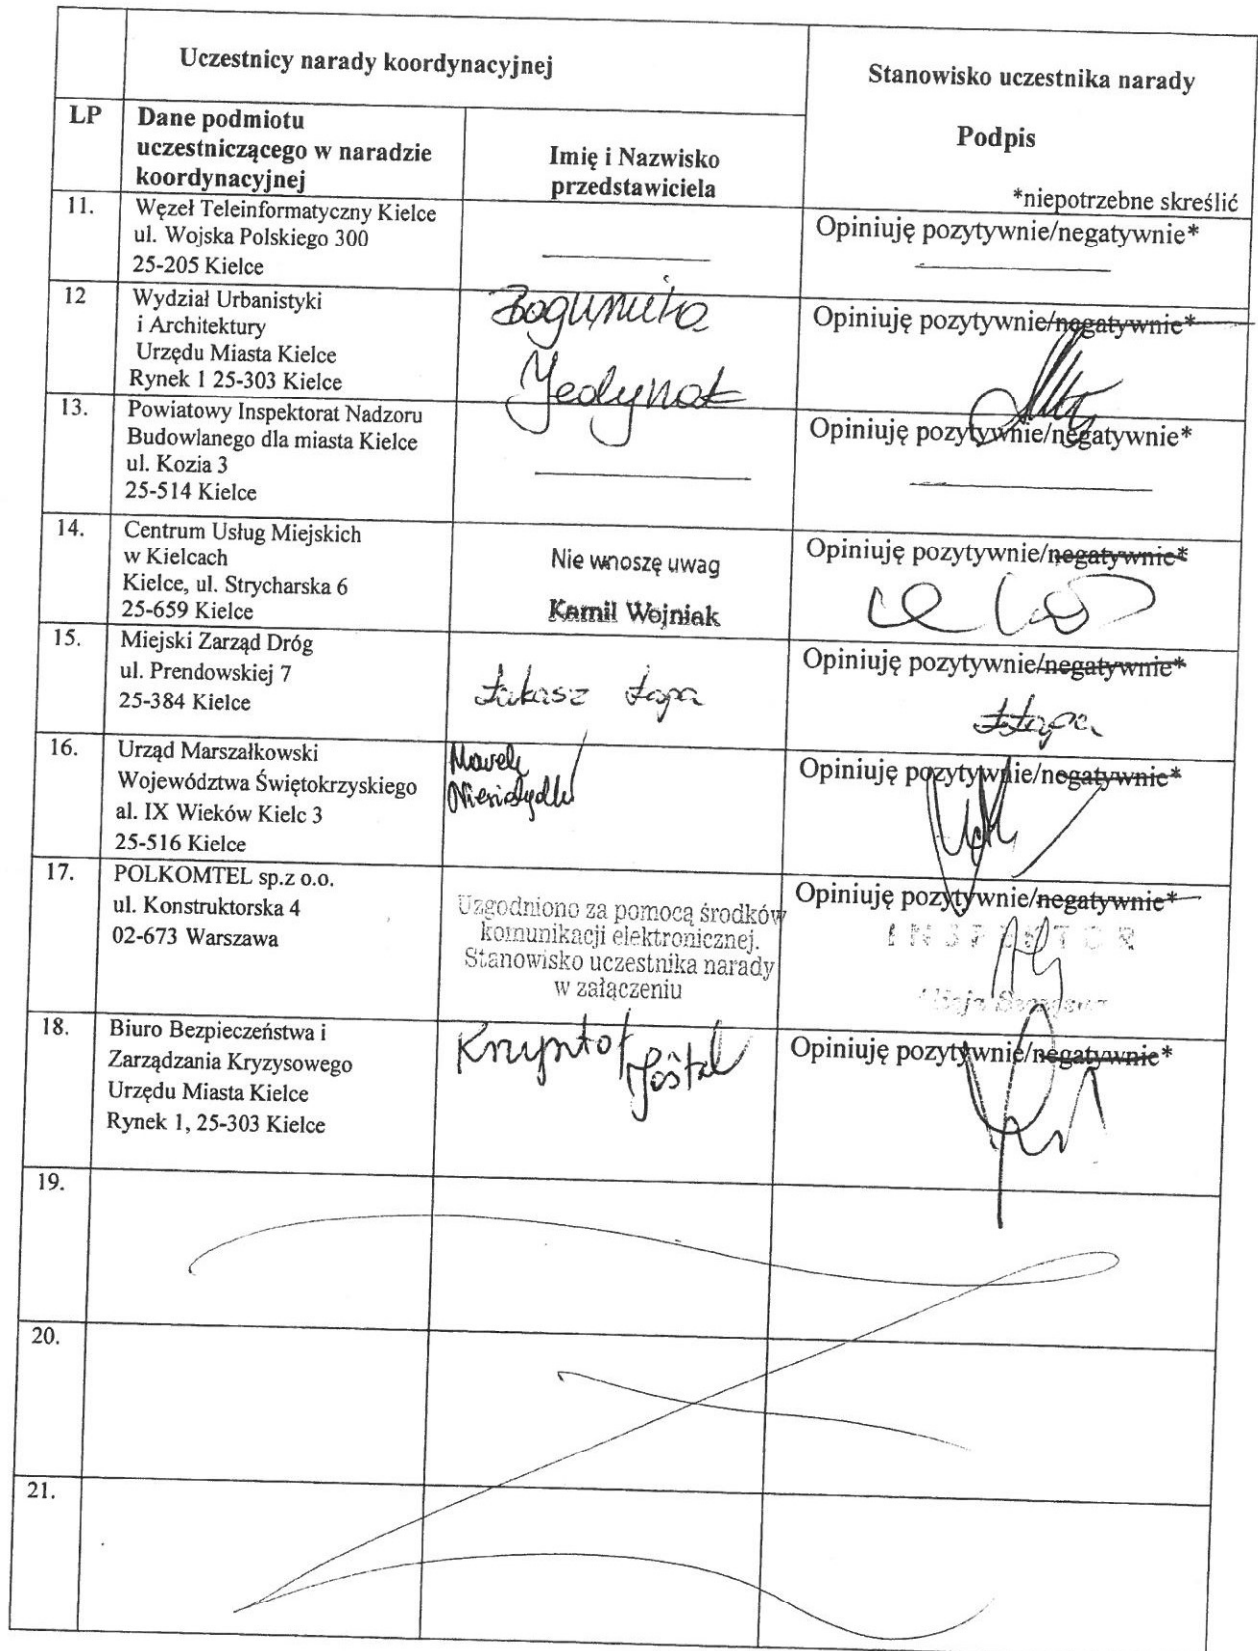 Uczestnicy narady koordynacyjnej
Stanowisko uczestnika narady
Podpis
*niepotrzebne skreślić
LP
Dane podmiotu
uczestniczącego w naradzie
koordynacyjnej
Imię i Nazwisko
przedstawiciela
11.
Węzeł Teleinformatyczny Kielce
ul. Wojska Polskiego 300
25-205 Kielce
Opiniuję pozytywnie/negatywnie*
12
Wydział Urbanistyki
i Architektury
Urzędu Miasta Kielce
Rynek 1 25-303 Kielce
Bogumiła
Jedynak
Opiniuję pozytywnie/negatywnie*
13.
Powiatowy Inspektorat Nadzoru
Budowlanego dla miasta Kielce
ul. Kozia 3
25-514 Kielce
Opiniuję pozytywnie/negatywnie*
14.
Centrum Usług Miejskich
w Kielcach
Kielce, ul. Strycharska 6
25-659 Kielce
Nie wnoszę uwag
Kamil Wojniak
Opiniuję pozytywnie/negatywnie*
15.
Miejski Zarząd Dróg
ul. Prendowskiej 7
25-384 Kielce
Łukasz Łapa
Opiniuję pozytywnie/negatywnie*
ŁŁapa
16.
Urząd Marszałkowski
Województwa Świętokrzyskiego
al. IX Wieków Kielc 3
25-516 Kielce
Opiniuję pozytywnie/negatywnie*
17.
POLKOMTEL sp.z o.o.
ul. Konstruktorska 4
02-673 Warszawa
Uzgodniono za pomocą środków
komunikacji elektronicznej.
Stanowisko uczestnika narady
w załączeniu
Opiniuję pozytywnie/negatywnie*
INSPEKTOR
18.
Biuro Bezpieczeństwa i
Zarządzania Kryzysowego
Urzędu Miasta Kielce
Rynek 1, 25-303 Kielce
Krzysztof
Opiniuję pozytywnie/negatywnie*
19.
20.
21.